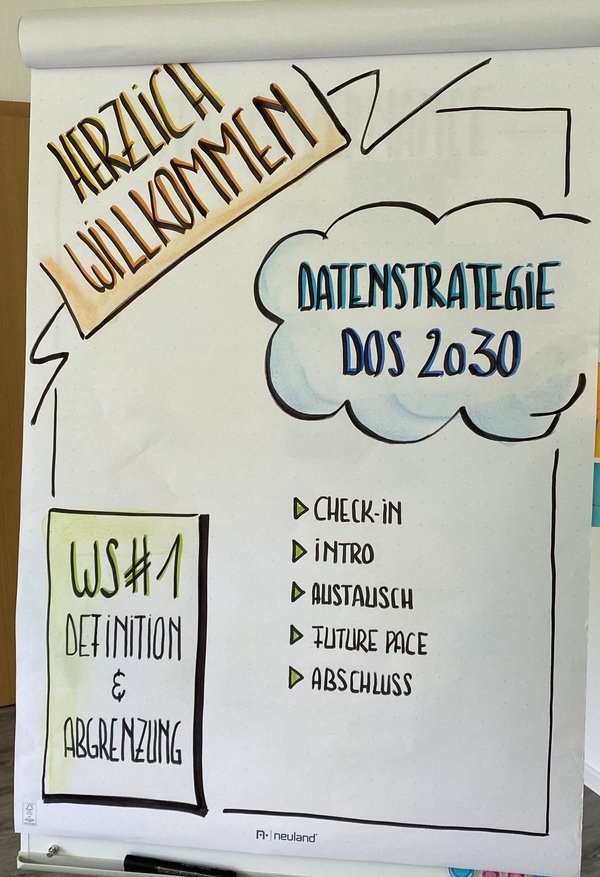 HERZLICH
WILLKOMMEN
DATENSTRATEGIE
DOS 2030
CHECK-IN
INTRO
AUSTAUSCH
FUTURE PACE
ABSCHLUSS
WS#1
DEFINITION
&
ABGRENZUNG
neuland